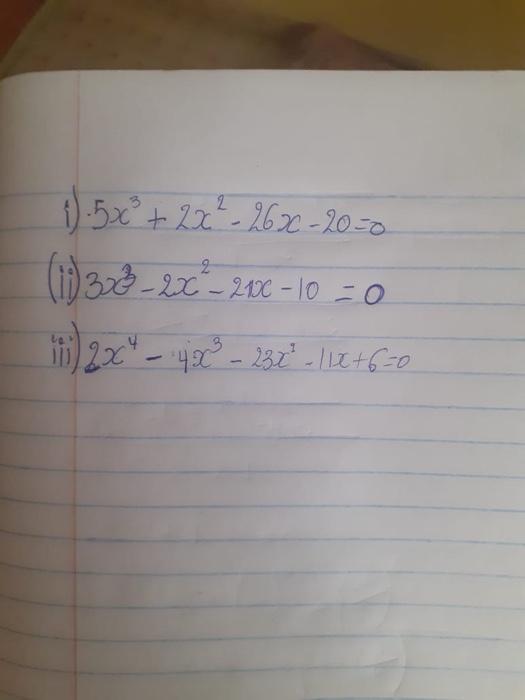 i) 5x³ + 2x² - 26x - 20 = 0
(ii) 3x³ - 2x² - 21x - 10 = 0
iii) 2x⁴ - 4x³ - 23x² - 11x + 6 = 0